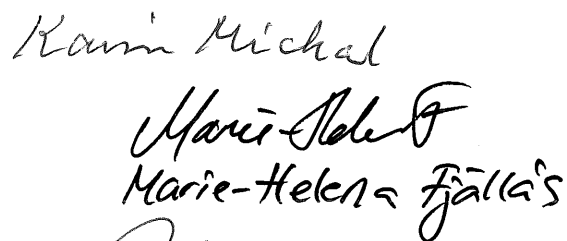 Karin Michal
Marie-Helena F
Marie-Helena Fjällås